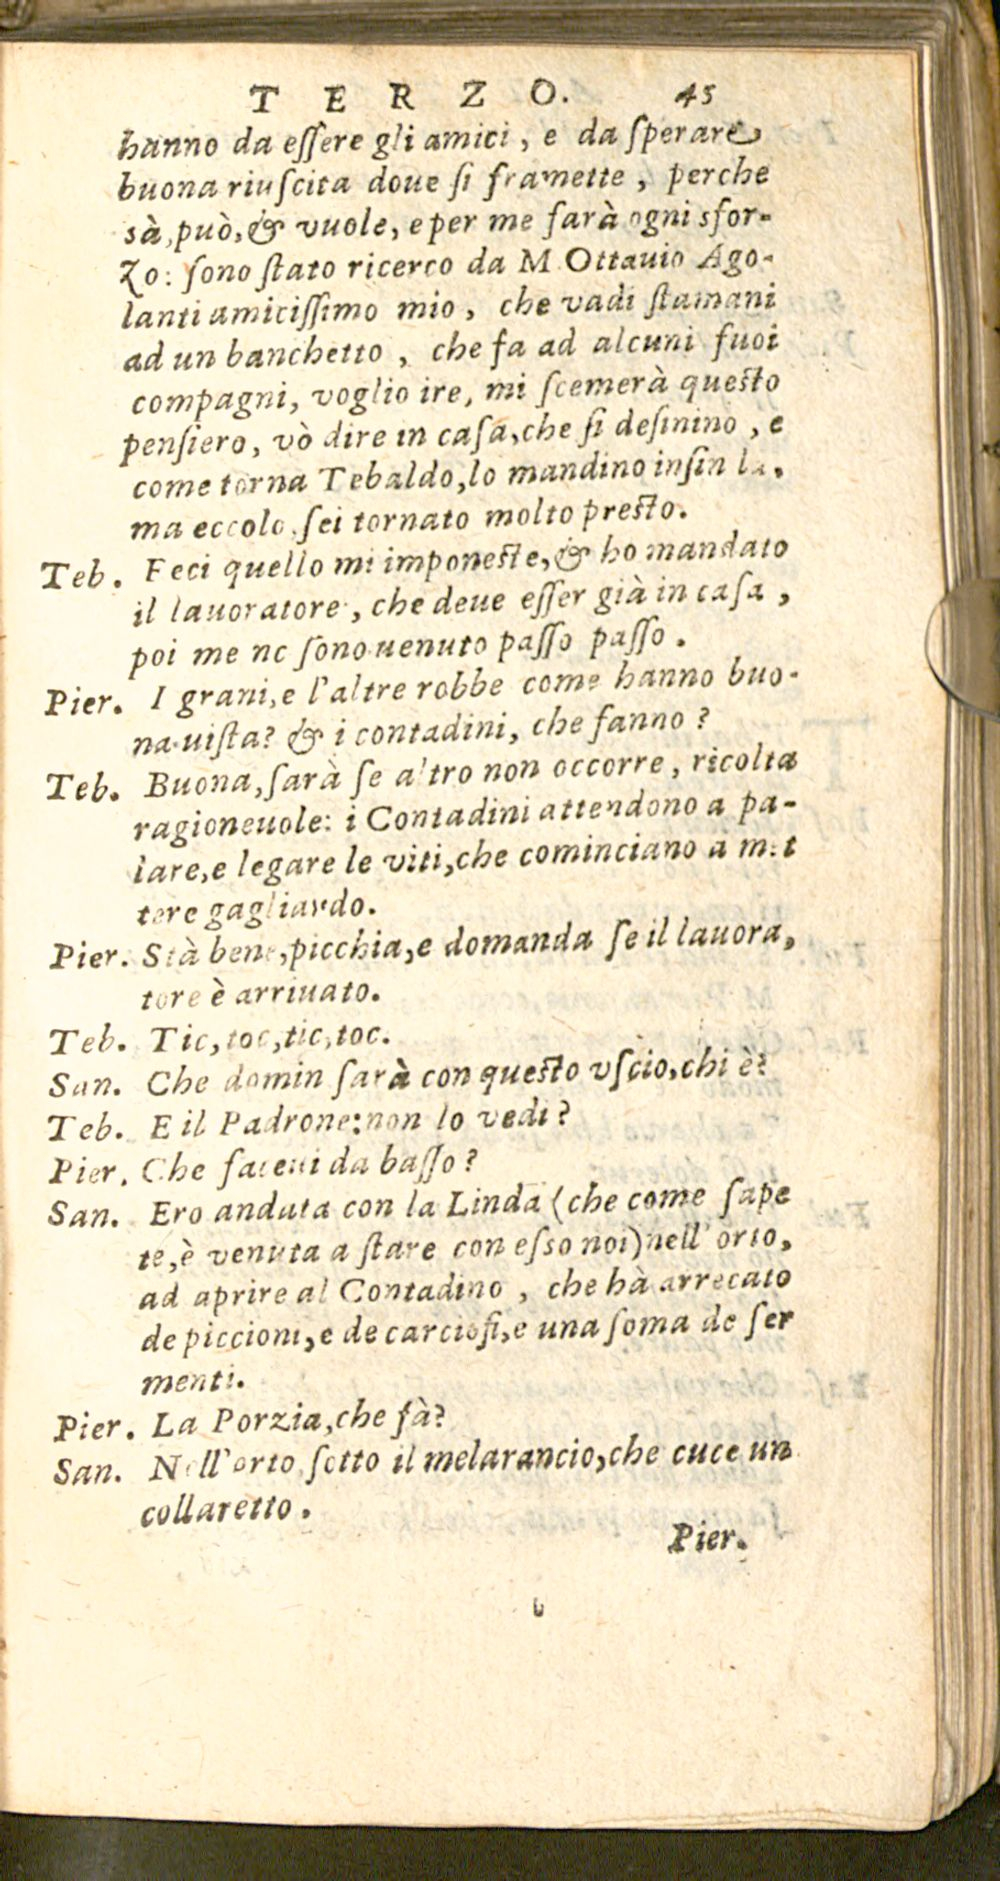 TERZO. 45
hanno da eſſere gli amici, e da ſperare
buona riuſcita doue ſi framette, perche
sà, può, & vuole, e per me farà ogni sfor-
zo: ſono ſtato ricerco da M Ottauio Ago-
lanti amiciſſimo mio, che vadi ſtamani
ad un banchetto, che fa ad alcuni ſuoi
compagni, voglio ire, mi ſcemerà queſto
penſiero, vò dire in caſa, che ſi deſinino, e
come torna Tebaldo, lo mandino inſin la,
ma eccolo, ſei tornato molto preſto.
Teb. Feci quello mi imponeſte, & ho mandato
il lauoratore, che deue eſſer già in caſa,
poi me ne ſono uenuto paſſo paſſo.
Pier. I grani, e l'altre robbe come hanno buo-
na uiſta? & i contadini, che fanno?
Teb. Buona, ſarà ſe altro non occorre, ricolta
ragioneuole: i Contadini attendono a pa-
lare, e legare le viti, che cominciano a met
tere gagliardo.
Pier. Stà bene, picchia, e domanda ſe il lauora,
tore è arriuato.
Teb. Tic, toc, tic, toc.
San. Che domin ſarà con queſto vſcio, chi è?
Teb. E il Padrone: non lo vedi?
Pier. Che faceui da baſſo?
San. Ero andata con la Linda (che come ſape
te, è venuta a ſtare con eſso noi) nell'orto,
ad aprire al Contadino, che hà arrecato
de piccioni, e de carcioſi, e una ſoma de ſer
menti.
Pier. La Porzia, che fà?
San. Nell'orto ſotto il melarancio, che cuce un
collaretto.
Pier.